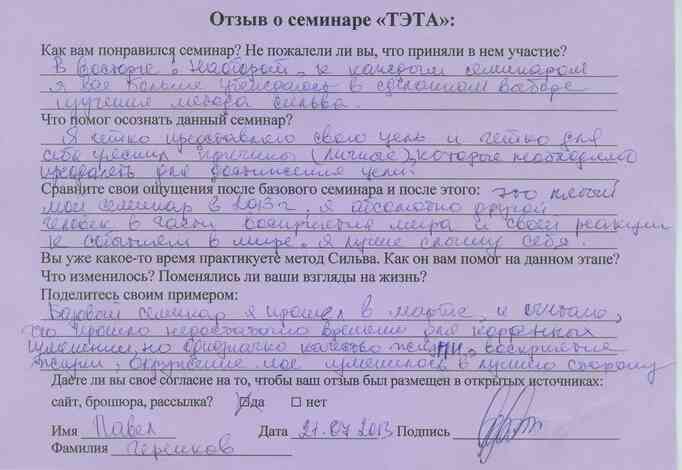 Отзыв о семинаре «ТЭТА»:
Как вам понравился семинар? Не пожалели ли вы, что приняли в нем участие?
В восторге. Повторный. с каждым семинаром
я все больше убеждаюсь в сделанном выборе
изучения метода Сильва.
Что помог осознать данный семинар?
Я четко представляю свою цель и четко для
себя уяснил причины (личные), которые необходимо
для достижения цели.
Сравните свои ощущения после базового семинара и после этого: это
мой семинар в 2013 г. я абсолютно другой
человек в части восприятия мира и своей реакции
к событиям в мире. Я лучше слышу себя.
Вы уже какое-то время практикуете метод Сильва. Как он вам помог на данном этапе?
Что изменилось? Поменялись ли ваши взгляды на жизнь?
Поделитесь своим примером:
Базовый семинар я прошел в марте, и считаю,
что прошло недостаточно времени для коренных
изменений, но однозначно качество жизни, восприятие
жизни, окружение мое изменилось в лучшую сторону
Даете ли вы свое согласие на то, чтобы ваш отзыв был размещен в открытых источниках:
сайт, брошюра, рассылка? да нет
Имя Павел Дата 21.07.2013 Подпись
Фамилия